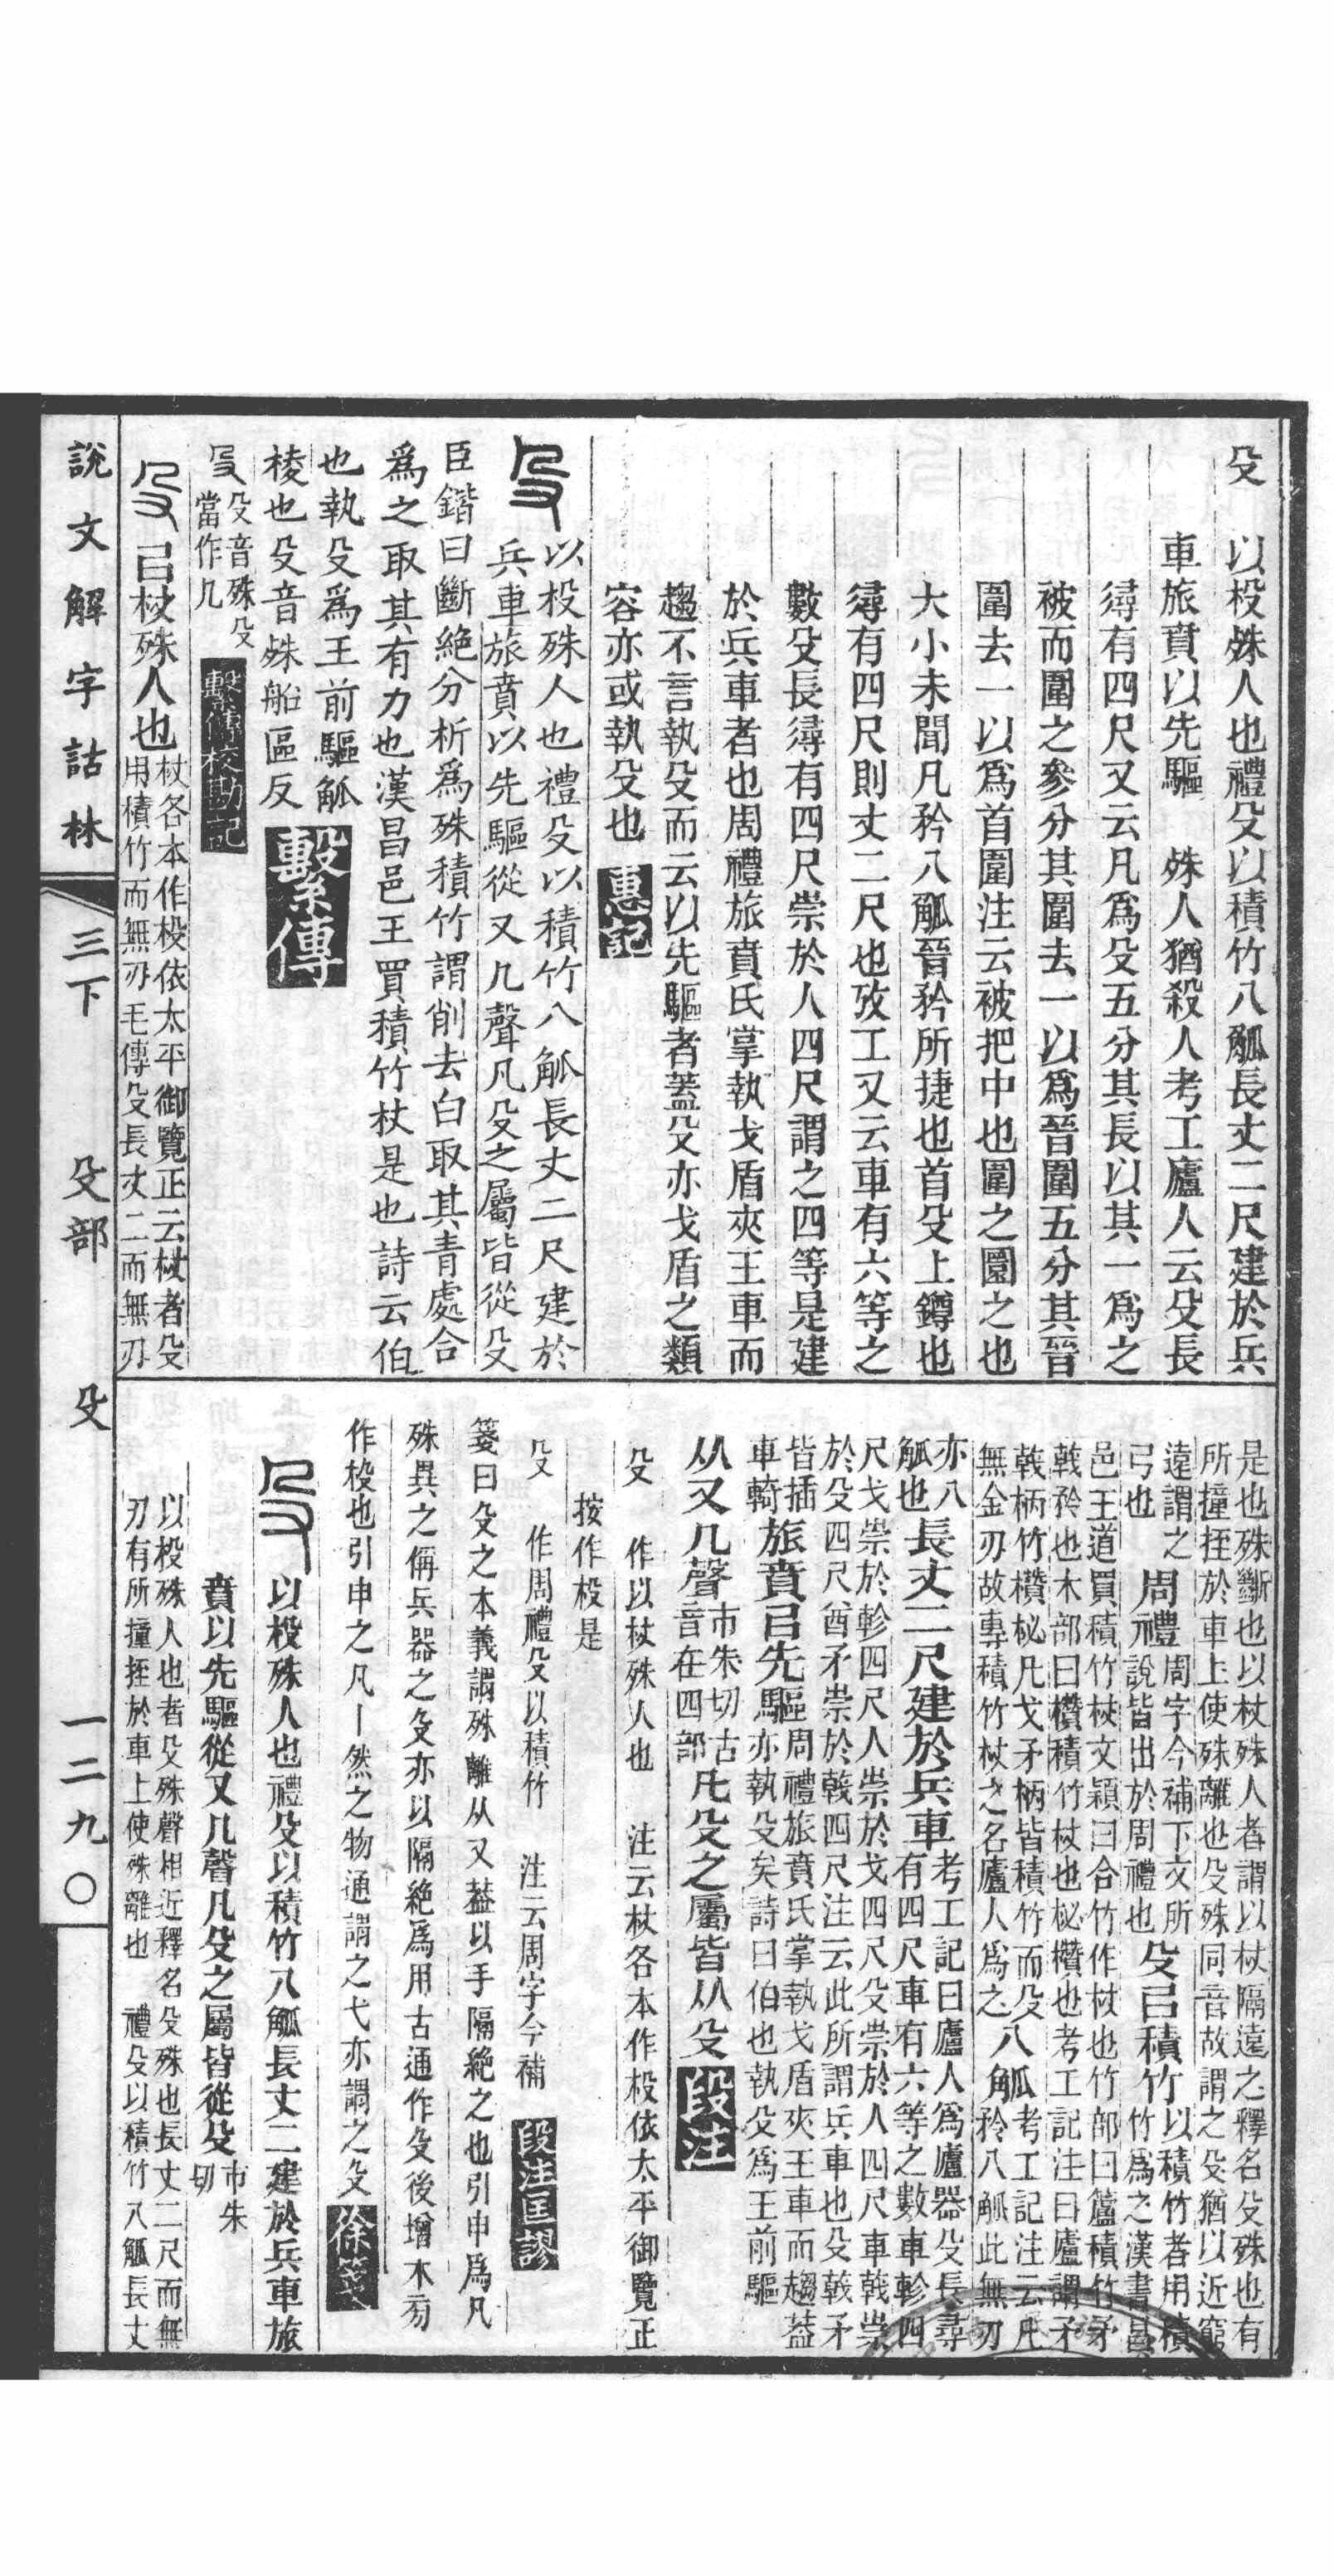 殳
以杸殊人也禮殳以積竹八觚長丈二尺建於兵
車旅賁以先驅　殊人猶殺人考工廬人云殳長
尋有四尺又云凡爲殳五分其長以其一爲之
被而圍之參分其圍去一以爲晉圍五分其晉
圍去一以爲首圍注云被把中也圍之圜之也
大小未聞凡矜八觚晉矜所捷也首殳上鐏也
尋有四尺則丈二尺也攷工又云車有六等之
數殳長尋有四尺崇於人四尺謂之四等是建
於兵車者也周禮旅賁氏掌執戈盾夾王車而
趨不言執殳而云以先驅者蓋殳亦戈盾之類
容亦或執殳也　惠記
以杸殊人也禮殳以積竹八觚長丈二尺建於
兵車旅賁以先驅從又几聲凡殳之屬皆從殳
臣鍇曰斷絕分析爲殊積竹謂削去白取其青處合
爲之取其有力也漢昌邑王買積竹杖是也詩云伯
也執殳爲王前驅觚
棱也殳音殊船區反　繫傳
殳音殊殳
當作几　繫傳校勘記
㠯杖殊人也
杖各本作杸依太平御覽正云杖者殳
用積竹而無刃毛傳殳長丈二而無刃
是也殊斷也以杖殊人者謂以杖隔遠之釋名殳殊也有
所撞挃於車上使殊離也殳殊同音故謂之殳猶以近窮
遠謂之
弓也
周禮
周字今補下文所
說皆出於周禮也
殳㠯積竹
以積竹者用積
竹爲之漢書昌
邑王道買積竹杖文穎曰合竹作杖也竹部曰籚積竹矛
戟矜也木部曰欑積竹杖也柲欑也考工記注曰廬謂矛
戟柄竹欑柲凡戈矛柄皆積竹而殳
無金刃故專積竹杖之名廬人爲之
八觚
考工記注云凡
矜八觚此無刃
亦八
觚也
長丈二尺建於兵車
考工記曰廬人爲廬器殳長尋
有四尺車有六等之數車軫四
尺戈崇於軫四尺人崇於戈四尺殳崇於人四尺車戟崇
於殳四尺酋矛崇於戟四尺注云此所謂兵車也殳戟矛
皆插
車輢
旅賁㠯先驅
周禮旅賁氏掌執戈盾夾王車而趨葢
亦執殳矣詩曰伯也執殳爲王前驅
从又几聲
市朱切古
音在四部
凡殳之屬皆从殳　段注
殳　作以杖殊人也　注云杖各本作杸依太平御覽正
按作杸是
殳　作周禮殳以積竹　注云周字今補　段注匡謬
箋曰殳之本義謂殊離从又葢以手隔絶之也引申爲凡
殊異之偁兵器之殳亦以隔絶爲用古通作殳後增木㫄
作杸也引申之凡丨然之物通謂之弋亦謂之殳　徐箋
以杸殊人也禮殳以積竹八觚長丈二建於兵車旅
賁以先驅從又几聲凡殳之屬皆從殳
市朱
切
以杸殊人也者殳殊聲相近釋名殳殊也長丈二尺而無
刃有所撞挃於車上使殊離也　禮殳以積竹八觚長丈
說文解字詁林　三下　殳部　殳　一二九〇